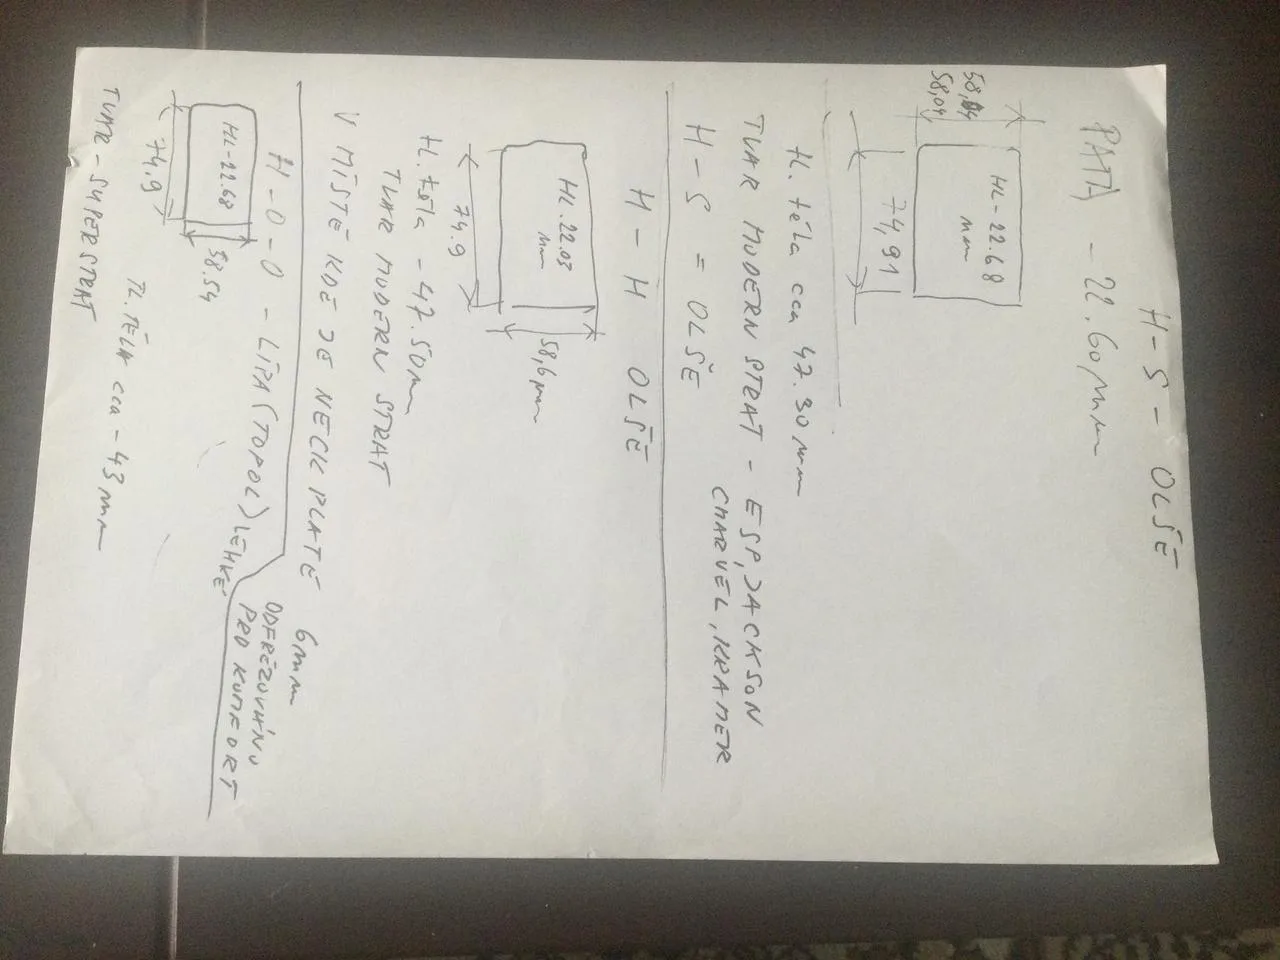 H-S - OLŠE
PATA - 22.60mm
58,04
58,04
HL-22.68
mm
74,91
tl. těla cca 47.30mm
TVAR MODERN STRAT - ESP, JACKSON
CHARVEL, KRAMER
H-S = OLŠE
H-H OLŠE
HL.22.03
mm
58,6mm
74.9
tl. těla - 47.50mm
TVAR MODERN STRAT
V MÍSTĚ KDE JE NECK PLATE 6mm
ODFRÉZOVÁNO
PRO KOMFORT
H-O-O - LÍPA (TOPOL) LEHKÉ
HL-22.68
58.54
74.9
TL. TĚLA cca - 43mm
TVAR - SUPERSTRAT